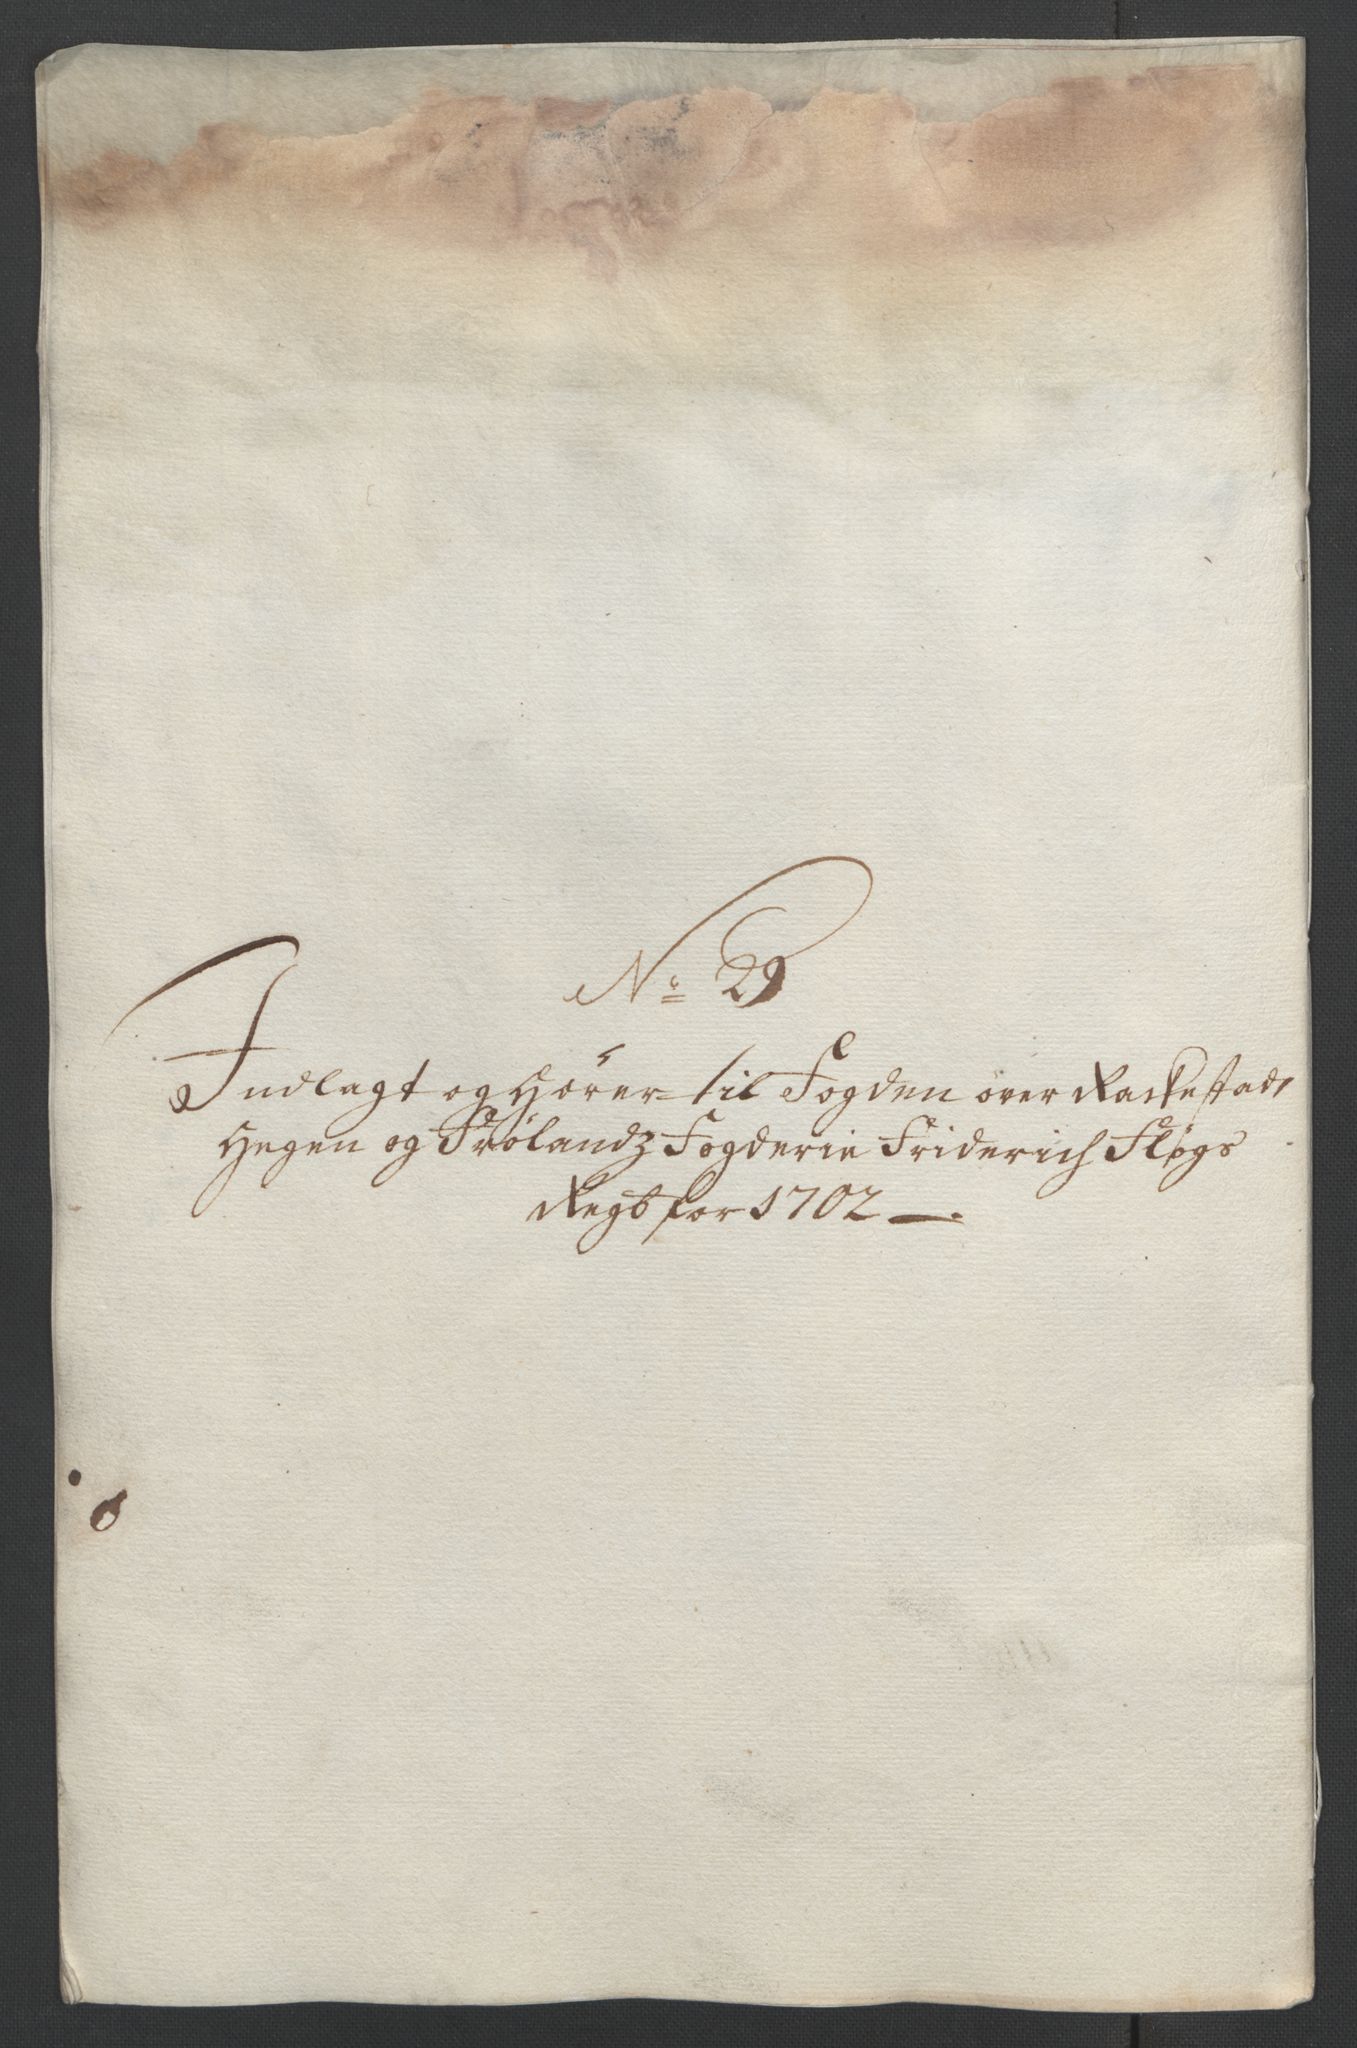 No 29
Indlagt og Hörer til Fogden över Rackestad
Hegen og Frölandz Fogderie Friderich Fløgs
Regb for 1702